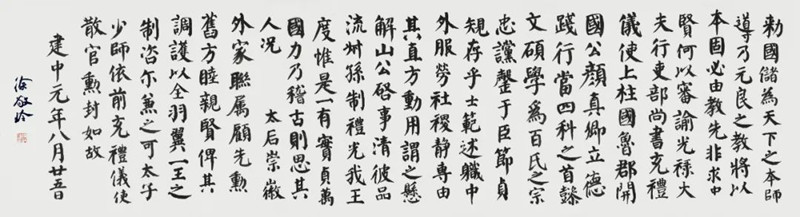 勅國儲為天下之本師
導乃元良之教將以
本固必由教先非求中
賢何以審諭光祿大
夫行吏部尚書充禮
儀使上柱國魯郡開
國公顏真卿立德
踐行當四科之首懿
文碩學爲百氏之宗
忠讜罄于臣節貞
規存乎士範述職中
外服勞社稷静專由
其直方動用謂之懸
解山公啓事清彼品
流叔孫制禮光我王
度惟是一有實貞萬
國力乃稽古則思其
人况 太后崇徽
外家聯属顧先勳
舊方睦親賢俾其
調護以全羽翼一王之
制咨尔兼之可太子
少師依前充禮儀使
散官勳封如故
建中元年八月廿五日